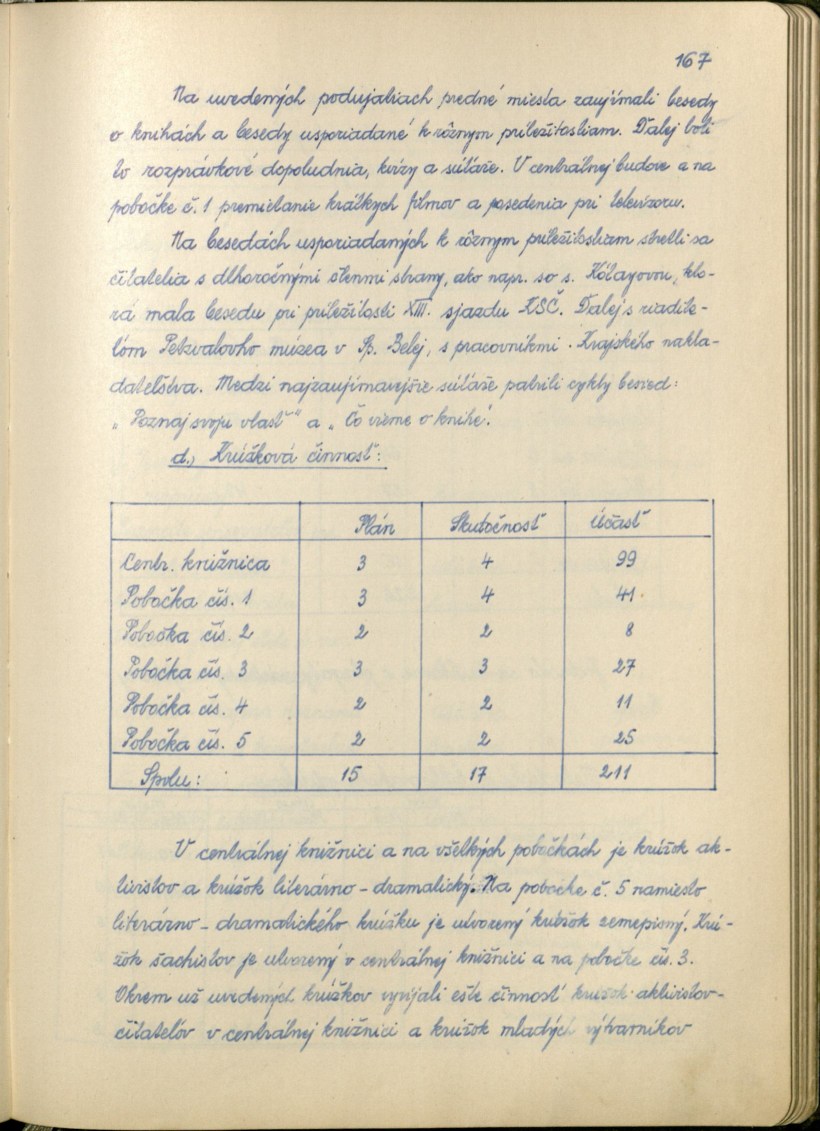 167
Na uvedených podujatiach predné miesta zaujímali besedy
o knihách a besedy usporiadané k rôznym príležitostiam. Ďalej boli
to rozprávkové dopoludnia, kvízy a súťaže. V centrálnej budove a na
pobočke č. 1 premietanie krátkych filmov a posedenia pri televízoru.
Na besedách usporiadaných k rôznym príležitostiam stretli sa
čitatelia s dlhoročnými členmi strany, ako napr. so s. Hólayovou, kto-
rá mala besedu pri príležitosti XIII. sjazdu KSČ. Ďalej s riadite-
ľom Petzvalovho múzea v Sp. Belej, s pracovníkmi Krajského nakla-
dateľstva. Medzi najzaujímavejšie súťaže patrili cykly besied:
„Poznaj svoju vlasť" a „Čo vieme o knihe".
d., Krúžková činnosť:
Plán Skutočnosť Účasť
Centr. knižnica 3 4 99
Pobočka čís. 1 3 4 41
Pobočka čís. 2 2 2 8
Pobočka čís. 3 3 3 27
Pobočka čís. 4 2 2 11
Pobočka čís. 5 2 2 25
Spolu: 15 17 211
V centrálnej knižnici a na všetkých pobočkách je krúžok ak-
tivistov a krúžok literárno-dramatický. Na pobočke č. 5 namiesto
literárno-dramatického krúžku je utvorený krúžok zemepisný. Krú-
žok šachistov je utvorený v centrálnej knižnici a na pobočke čís. 3.
Okrem už uvedených krúžkov vyvíjali ešte činnosť krúžok aktivistov-
čitateľov v centrálnej knižnici a krúžok mladých výtvarníkov